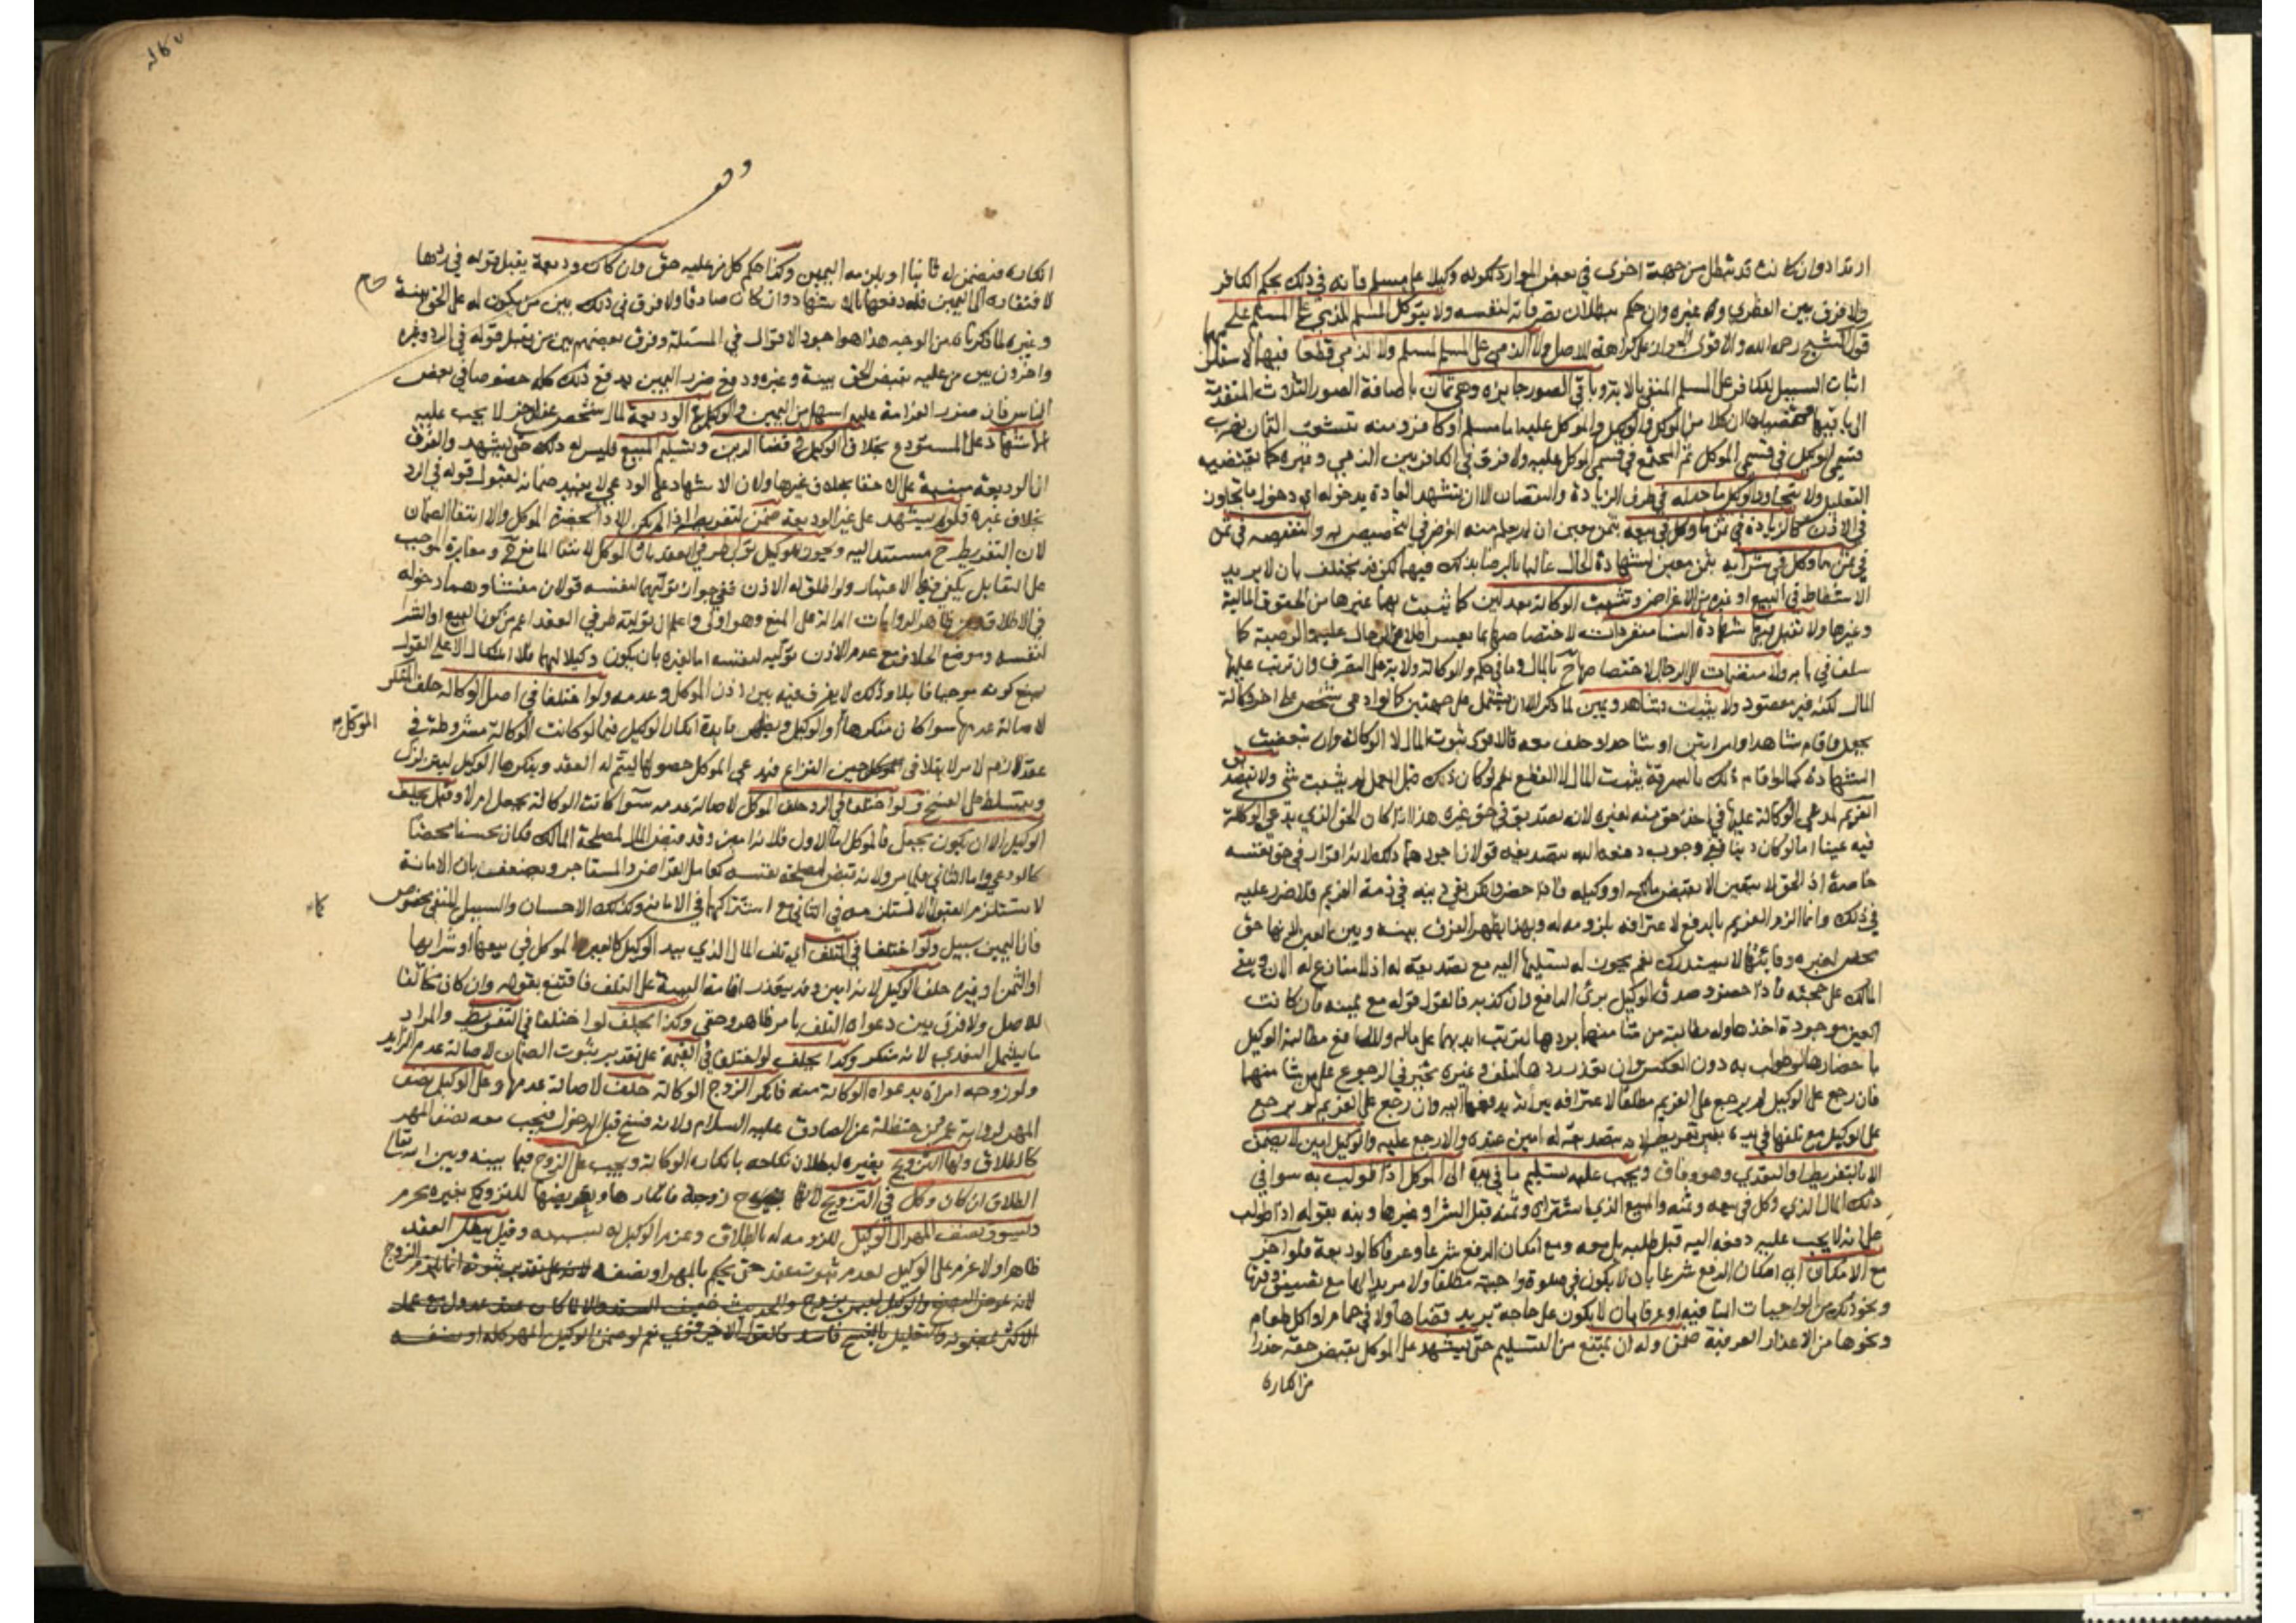 ارتدادا وان كانت قد تبطل من جهة اخرى في بعض الموارد ككونه وكيلا على مسلم فانه في ذلك بحكم الكافر
ولا فرق بين الفطري وغيره وان حكم ببطلان تصرفاته لنفسه ولا يتوكل المسلم للذمي على المسلم على
قول الشيخ رحمه الله والاقوى الجواز على كراهة للاصل ولا الذمي على المسلم لمسلم ولا لذمي قطعا فيهما لاستلزامهما
اثبات السبيل للكافر على المسلم المنفي بالاية وباقي الصور جايزة وهي ثمان باضافة الصور الثلاث المتقدمة
الى باقيها ان كلا من الموكل والوكيل والموكل عليه اما مسلم او كافر ومنه تتشعب الثمان بضرب
قسمي الوكيل في قسمي الموكل ثم المجتمع في قسمي الموكل عليه ولا فرق في الكافر بين الذمي وغيره كما يقتضيه
التعليل ولا يتجاوز الوكيل ما حد له في طرف الزيادة والنقصان الا ان تشهد العادة بدخوله اي دخول ما تجاوز
في الاذن كالزيادة في ثمن ما وكل في بيعه بثمن معين ان لم يعلم منه الغرض في التخصيص به والنقيصة في ثمن
في ثمن ما وكل في شرايه بثمن معين لشهادة الحال غالبا بالرضا بذلك فيهما لكن قد يختلف بان لا يريد
الاشطاط في البيع او غيره من الاغراض وتثبت الوكالة بعدلين كما تثبت بهما غيرها من الحقوق المالية
وغيرها ولا تقبل فيها شهادة النسا منفردات لاختصاصها بما يعسر اطلاع الرجال عليه والوصية كما
سلف في بابه ولا منضمات للرجال لاختصاصها ح بالمال وما في حكمه والوكالة ولاية على التصرف وان ترتب عليها
المال لكنه غير مقصود ولا يثبت بشاهد ويمين لما ذكر الا ان يشتمل على جهتين كما لو ادعى شخص على اخر وكالة
بجعل واقام شاهدا وامراتين او شاهدا وحلف معه فالاقوى ثبوت المال لا الوكالة وان تبعضت
الشهادة كما لو اقام ذلك بالسرقة يثبت المال لا القطع نعم لو كان ذلك قبل العمل لم يثبت شي ولا تصديق
الغريم لمدعي الوكالة عليها في اخذ حق منه لغيره لانه تصديق في حق غيره هذا اذا كان الحق الذي يدعي الوكالة
فيه عينا اما لو كان دينا ففي وجوب دفعه اليه بتصديقه قولان اجودهما ذلك لانه اقرار في حق نفسه
خاصة اذ الحق لا يتعين الا بقبض مالكه او وكيله فاذا حضر وانكر بقي دينه في ذمة الغريم فلا ضرر عليه
في ذلك وانما الزم الغريم بالدفع لاعترافه بلزومه له وبهذا يظهر الفرق بينه وبين العين لانها حق
محض لغيره وفايتها لا يستدرك نعم يجوز له تسليمها اليه مع تصديقه له اذ لا منازع له الان ويبقى
المالك على حجته فاذا حضر وصدق الوكيل برئ الدافع وان كذبه فالقول قوله مع يمينه فان كانت
العين موجودة اخذها وله مطالبة من شا منهما بردها لترتب ايديهما على ماله وللدافع مطالبة الوكيل
باحضارها لو طولب به دون العكس وان تعذر ردها بتلف وغيره تخير في الرجوع على من شا منهما
فان رجع على الوكيل لم يرجع على الغريم مطلقا لاعترافه ببرائته بدفعها اليه وان رجع على الغريم لم يرجع
على الوكيل مع تلفها في يده بغير تفريط لانه بتصديقه له امين عنده والا رجع عليه والوكيل امين لا يضمن
الا بالتفريط او التعدي وهو وفاق ويجب عليه تسليم ما في يده الى الموكل اذا طولب به سوا في
ذلك المال الذي وكل في بيعه وثمنه والمبيع الذي اشتراه وثمنه قبل الشرا وغيرها ونبه بقوله اذا طولب
على انه لا يجب عليه دفعه اليه قبل طلبه بل معه ومع امكان الدفع شرعا وعرفا كالوديعة فلو اخر
مع الامكان اي امكان الدفع شرعا بان لا يكون في صلوة واجبة مطلقا ولا مريدا لها مع تضييق وقتها
ونحو ذلك من الواجبات المنافية او عرفا بان لا يكون على حاجة يريد قضاها ولا في حمام او اكل طعام
ونحوها من الاعذار العرفية ضمن وله ان يمتنع من التسليم حتى يشهد على الموكل بقبض حقه حذرا
من انكاره
انكاره فيضمن له ثانيا او يلزمه اليمين وكذا حكم كل من عليه حق وان كان وديعة يقبل قوله في ردها
لافتقاره الى اليمين فله دفعها بالاشهاد وان كان صادقا ولا فرق في ذلك بين من يكون له على الحق بينة
وغيره لما ذكرناه من الوجه هذا هو اجود الاقوال في المسئلة وفرق بعضهم بين من يقبل قوله في الرد وغيره
واخرون بين من عليه بقبض الحق بينة وغيره ودفع ضرر اليمين يدفع ذلك كله خصوصا في بعض
الناس فان ضرر الغرامة عليهم اسهل من اليمين والوكيل في الوديعة لمال شخص عند اخر لا يجب عليه
الاشهاد على المستودع بخلاف الوكيل في قضا الدين وتسليم المبيع فليس له ذلك حتى يشهد والفرق
ان الوديعة مبنية على الاخفا بخلاف غيرها ولان الاشهاد على الودعي لا يفيد ضمانه لقبول قوله في الرد
بخلاف غيره فلو لم يشهد على غير الوديعة ضمن لتفريطه اذا لم يكن الاداء بحضرة الموكل والا انتفا الضمان
لان التفريط ح مستند اليه ويجوز للوكيل تولي طرفي العقد باذن الموكل لانتفا المانع ح ومغايرة الموجب
على القابل يكفي فيها الاعتبار ولو اطلق له الاذن ففي جواز توليهما لنفسه قولان منشاوهما دخوله
في الاطلاق ومن ظاهر الروايات الدالة على المنع وهو اولى واعلم ان توليته طرفي العقد اعم من كون البيع او الشرا
لنفسه وموضع الخلاف مع عدم الاذن توليه لنفسه اما لغيره بان يكون وكيلا لهما فلا اشكال الا على القول
بمنع كونه موجبا قابلا وذلك لا يفرق فيه بين اذن الموكل وعدمه ولو اختلفا في اصل الوكالة حلف المنكر
لاصالة عدمها سوا كان منكرها او الوكيل وتظهر فايدة انكار الوكيل فيما لو كانت الوكالة مشروطة في
الموكل
عقد لازم لامر لا يتلافى حين النزاع فيدعي الموكل حصولها ليتم له العقد وينكرها الوكيل ليتزلزل
ويتسلط على الفسخ ولو اختلفا في الرد حلف الموكل لاصالة عدمه سوا كانت الوكالة بجعل ام لا وقيل يحلف
الوكيل الا ان يكون بجعل فالموكل اما الاول فلانه امين وقد قبض المال لمصلحة المالك فكان محسنا محضا
كالودعي واما الثاني فلما مر ولانه قبض لمصلحة نفسه كعامل القراض والمستاجر ويضعف بان الامانة
لا تستلزم القبول كما لا تستلزمه في الثاني مع اشتراكهما في الامانة وكذلك الاحسان والسبيل المنفي مخصوص
فان اليمين سبيل ولو اختلفا في التلف اي تلف المال الذي بيد الوكيل كالعين الموكل في بيعها او شرائها
او الثمن او غيره حلف الوكيل لانه امين وقد يتعذر اقامة البينة على التلف فاقتنع بقوله وان كان مخالفا
للاصل ولا فرق بين دعواه التلف بامر ظاهر وخفي وكذا يحلف لو اختلفا في التفريط والمراد
ما يشمل التعدي لانه منكر وكذا يحلف لو اختلفا في القيمة على تقدير ثبوت الضمان لاصالة عدم الزايد
ولو زوجه امراة بدعواه الوكالة منه فانكر الزوج الوكالة حلف لاصالة عدمها وعلى الوكيل نصف
المهر لرواية عمر بن حنظلة عن الصادق عليه السلام ولانه فسخ قبل الدخول فيجب معه نصف المهر
كالطلاق ولها التزويج بغيره لبطلان نكاحه بانكاره الوكالة ويجب على الزوج فيما بينه وبين الله تعالى
الطلاق ان كان وكل في التزويج لانها زوجة فانكارها وتعريضها للتزويج بغيره محرم
ويسوق نصف المهر الى الوكيل للزومه له بالطلاق وغرم الوكيل له بسببه وقيل يبطل العقد
ظاهرا ولا غرم على الوكيل لعدم ثبوت عقد حتى يحكم بالمهر او نصفه لانه على تقدير ثبوته انما يلزم الزوج
لانه عوض البضع والوكيل ليس بزوج والحديث ضعيف السند والا لما كان عنه عدول مع عمل
الاكثر بمضمونه والتعليل بالفسخ فاسد فالقول الاخير قوي نعم لو ضمن الوكيل المهر كله او نصفه